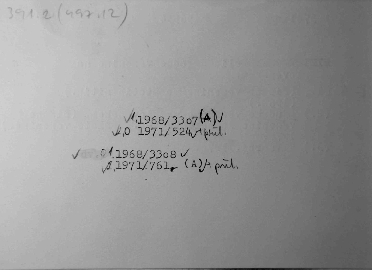 391.2 (497.12)
1. 1968/3307 (A) ✓
2.0 1971/524 /1 pril.
✓ 1. 1968/3308 ✓
2. 1971/761, (A) /1 pril.